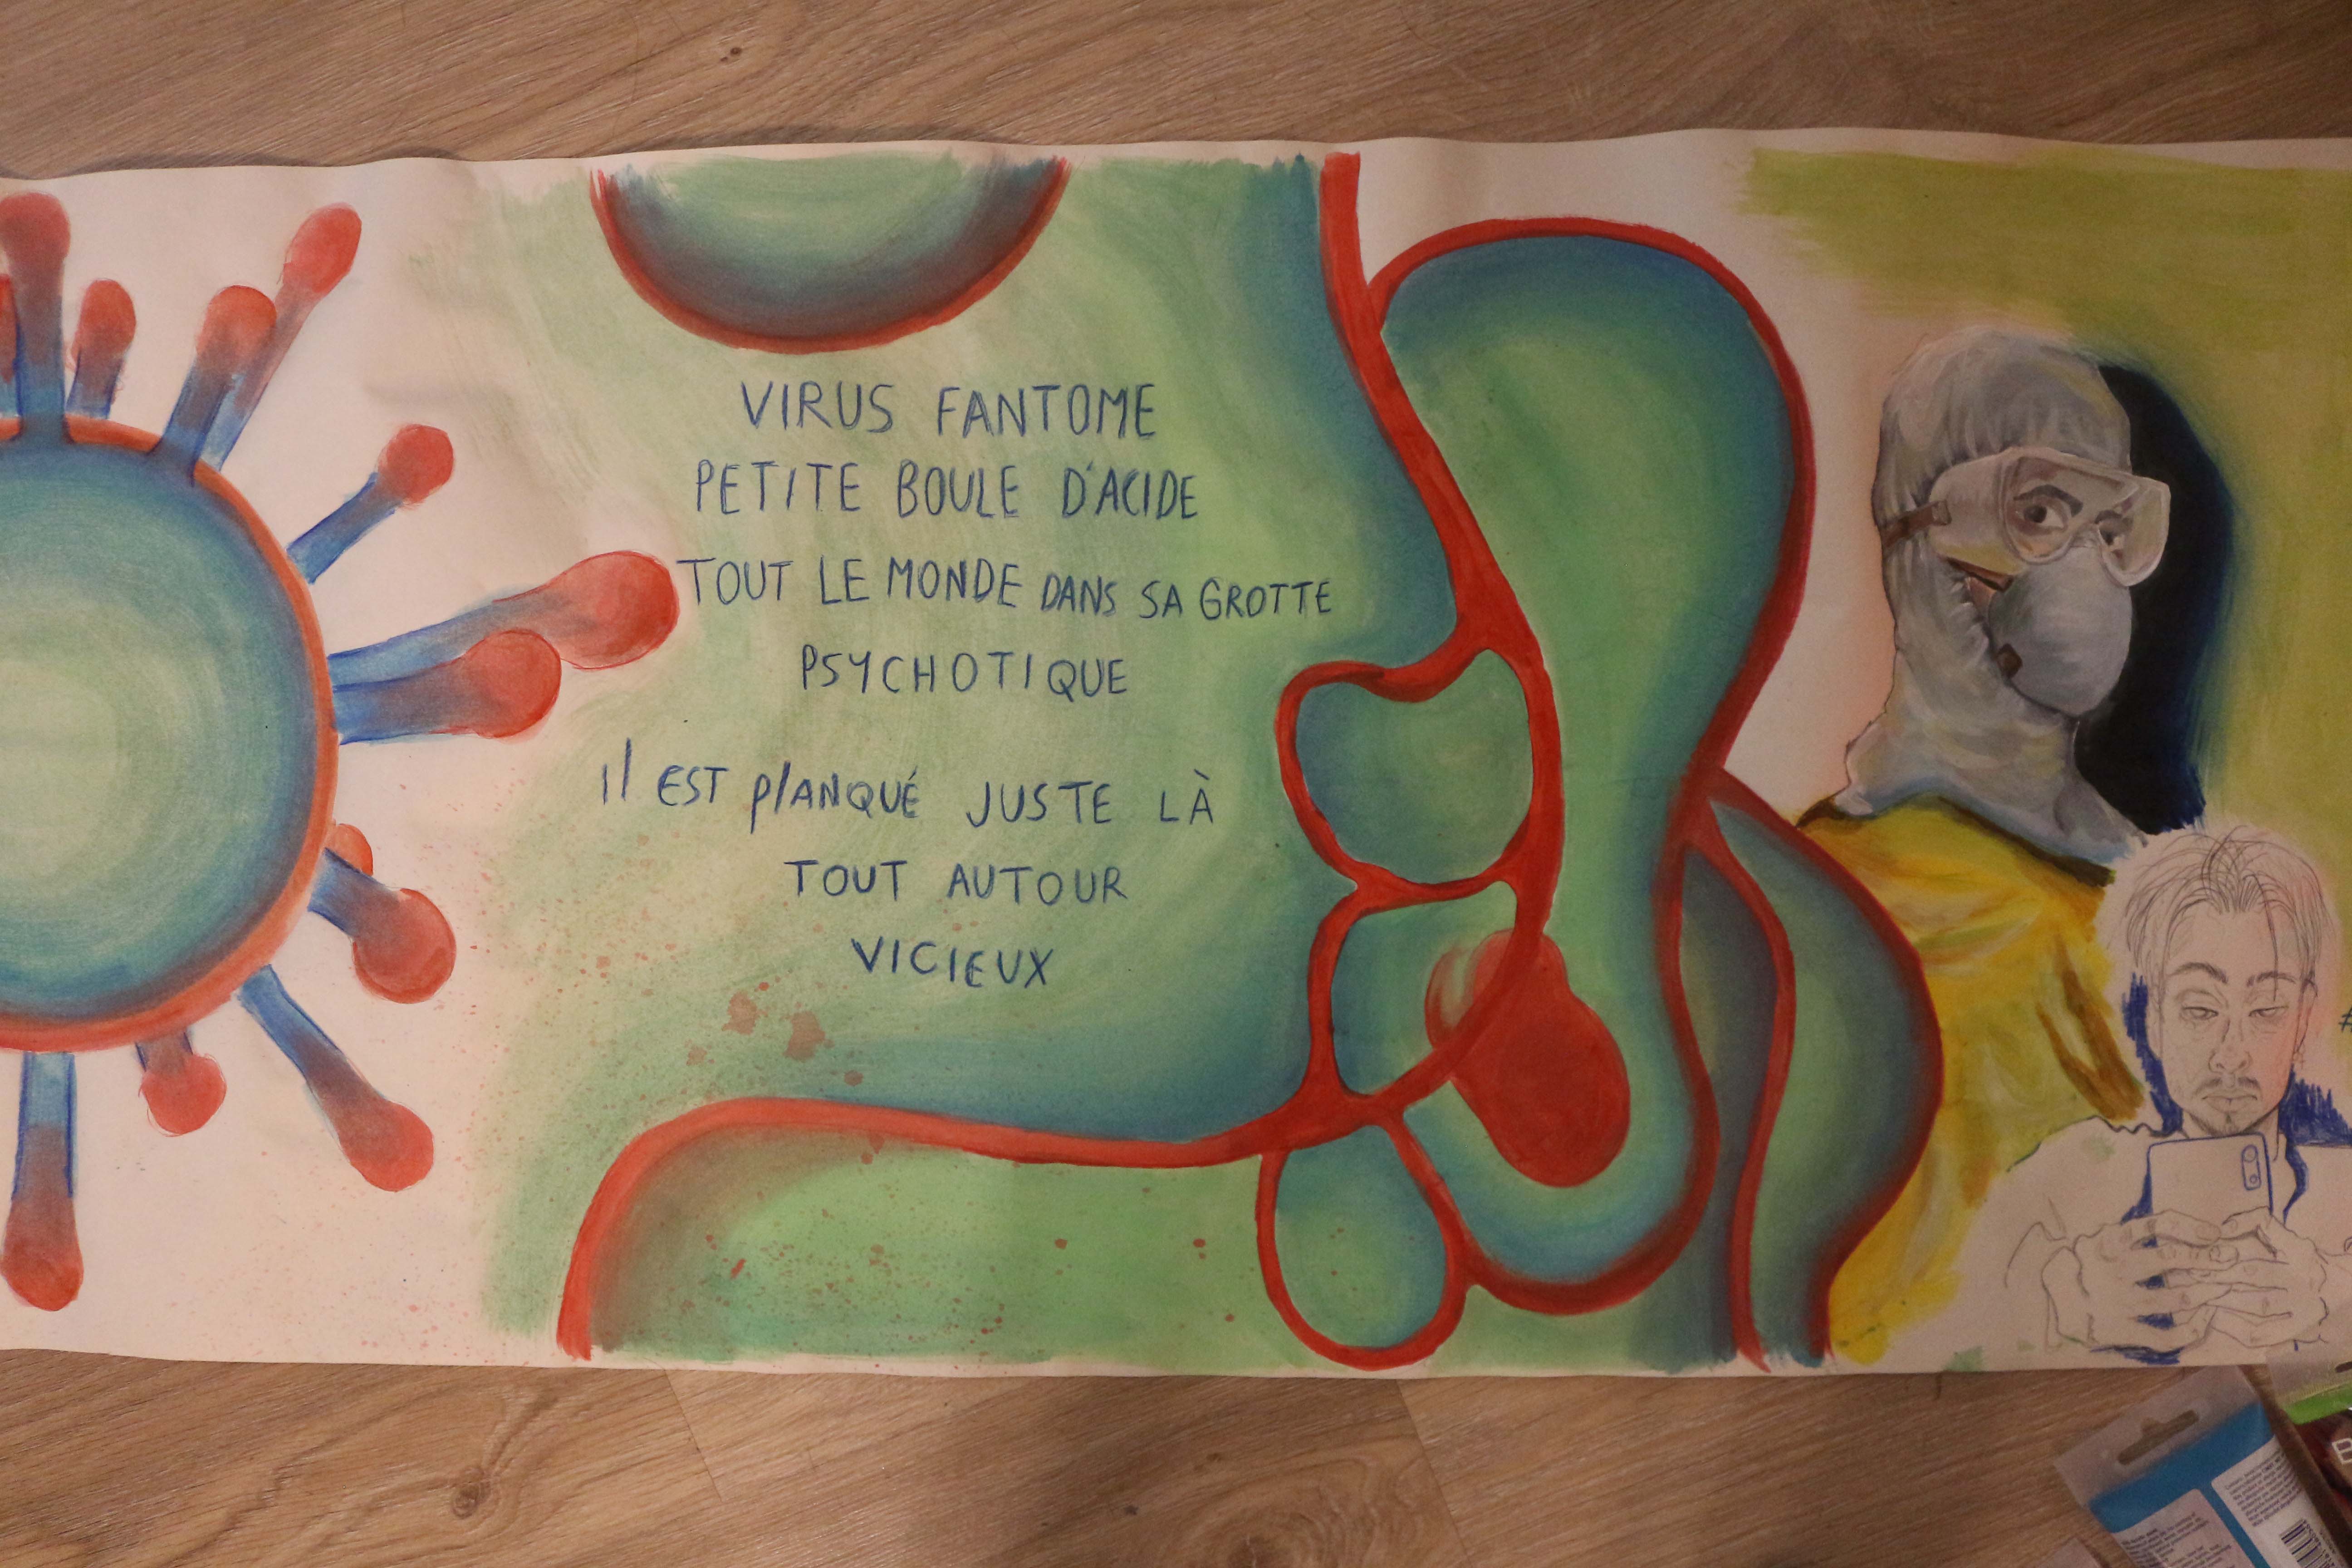 VIRUS FANTOME
PETITE BOULE D'ACIDE
TOUT LE MONDE DANS SA GROTTE
PSYCHOTIQUE
Il EST plANQUÉ JUSTE LÀ
TOUT AUTOUR
VICIEUX